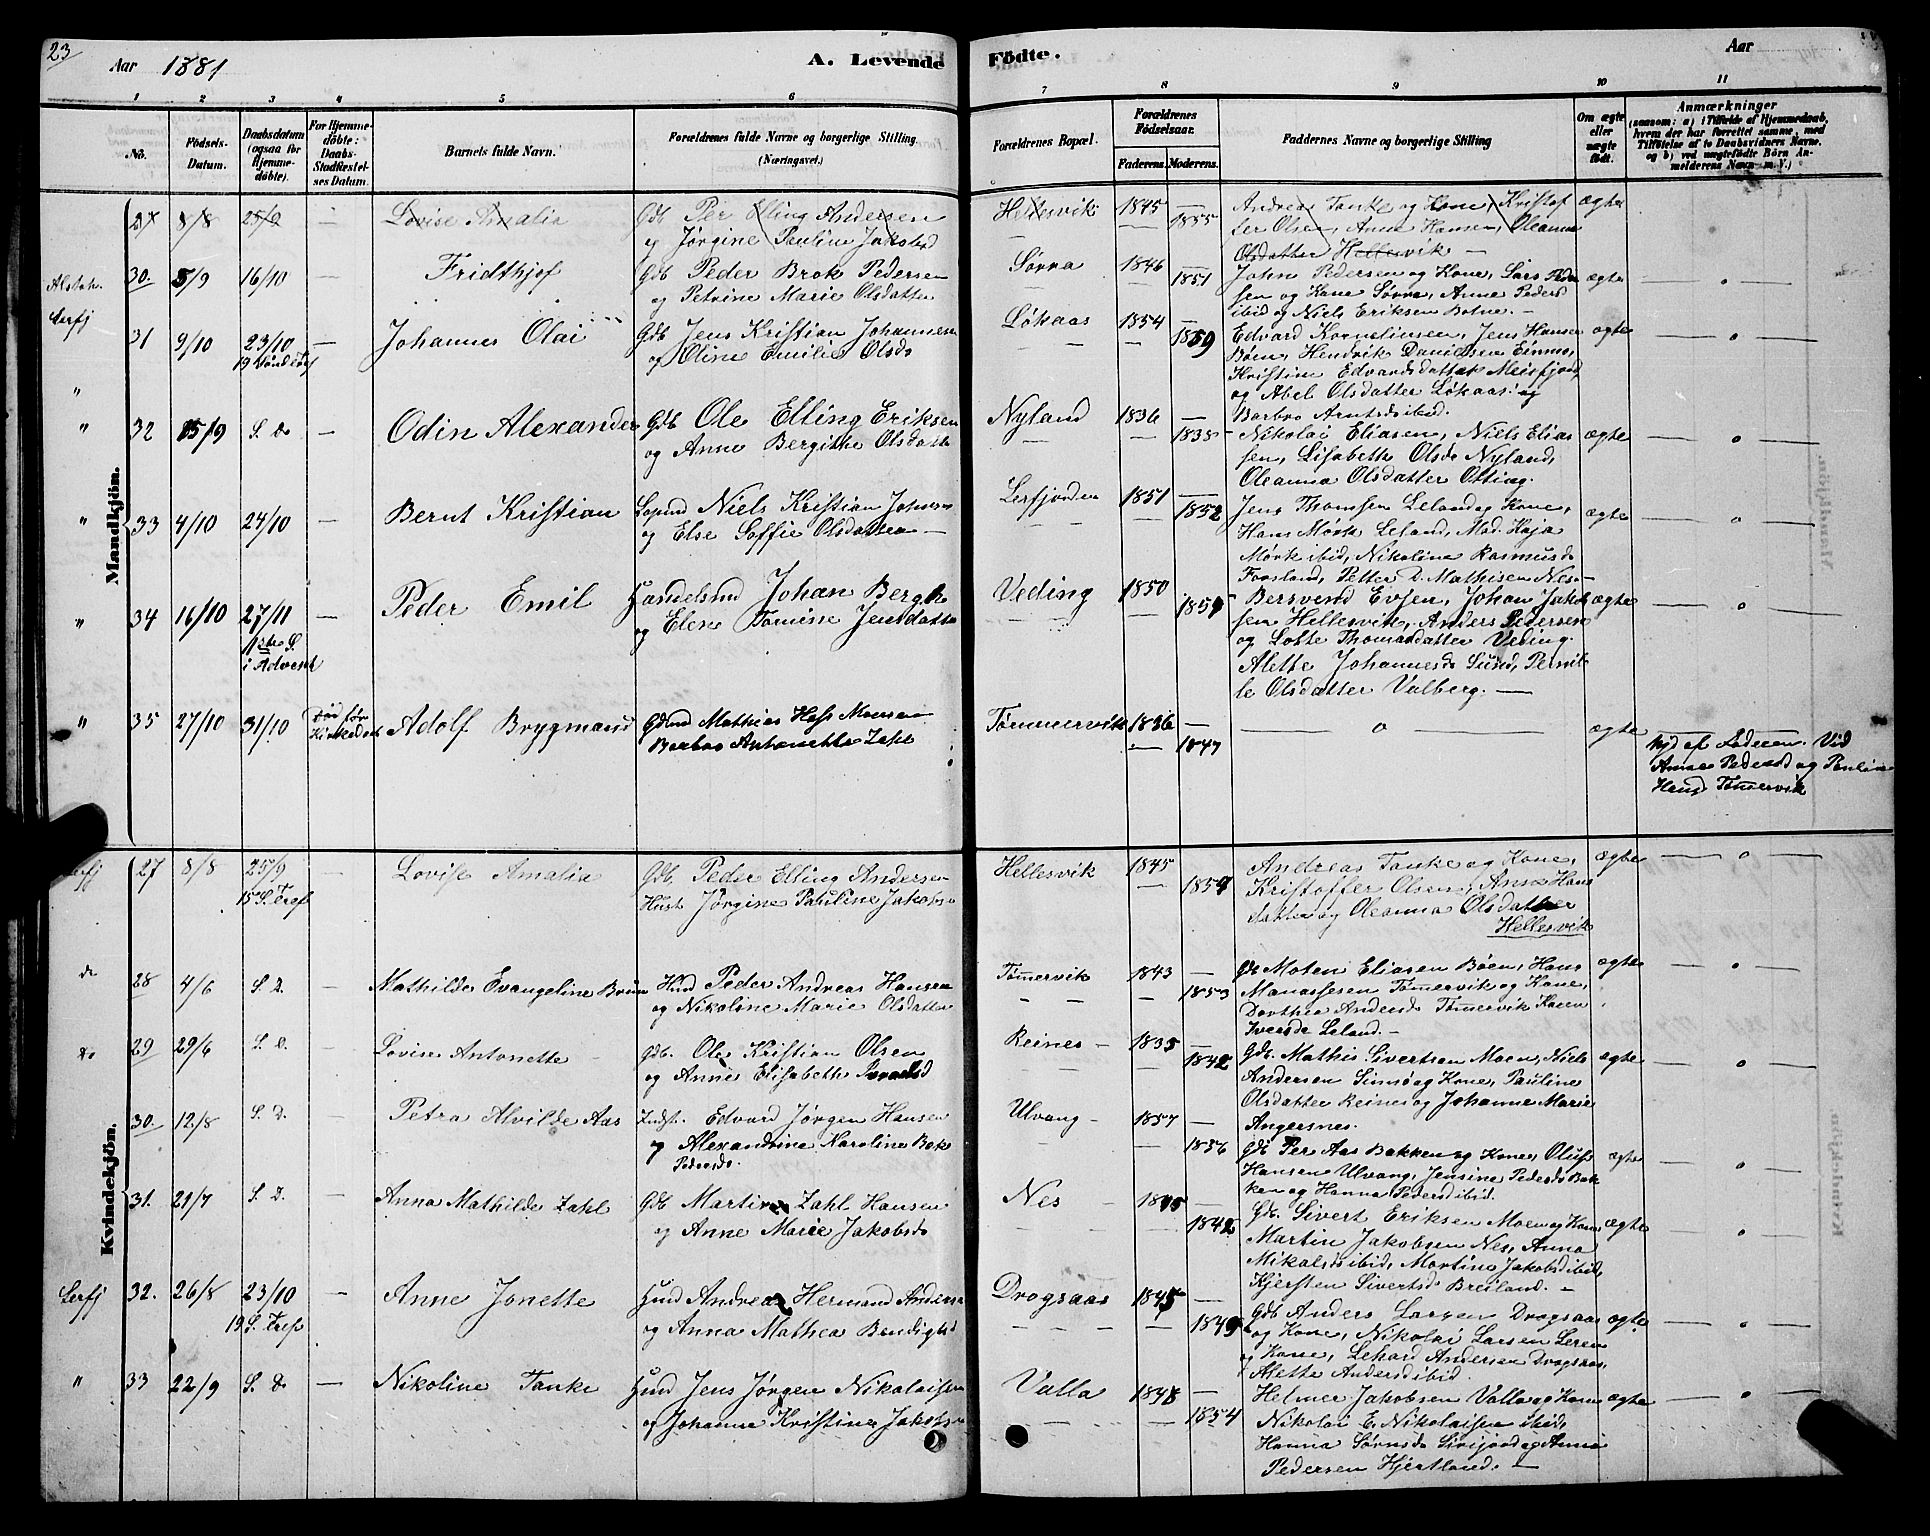 23
Aar 1881
A. Levende
Födte.
Aar
1 2 3 4 5 6 7 8 9 10 11
No.
Födsels-
Datum.
Daabsdatum
(ogsaa for
Hjemme-
döbte).
For Hjemme-
döbte:
Daabs-
Stadfæstel-
ses Datum.
Barnets fulde Navn.
Forældrenes fulde Navne og borgerlige Stilling.
(Næringsvei.)
Forældrenes Bopæl.
Forældrenes
Födselsaar.
Faderens. Moderens.
Faddernes Navne og borgerlige Stilling
Om ægte
eller
uægte
födt.
Anmærkninger
(saasom: a) i Tilfælde af Hjemmedaab,
hvem der har forrettet samme, med
Tilföielse af to Daabsvidners Navne.
og b) ved uægtefödte Börn An-
melderens Navn m. V.)
Mandkjön.
8/8 25/9 — Lovise Amalia Gdb Per Elling Andersen
og Jørgine Pauline Jakobsd
Hellesvik 1845 — 1855
Andreas Tanke og Kone, Kristof
fer Olsen, Anne Hansen, Oleanna
Olsdatter Hellesvik —
ægte
30. 5/9 16/10 — Fridthjof Gdb Peder Brok Pedersen
og Petrine Marie Olsdatter
Sørra 1846 — 1851
John Pedersen og Kone, Lars Peder
sen og Kone Sørra, Anne Peders
ibid og Niels Eriksen Botne. —
ægte — o —
Lerfj
31 9/10 23/10 — Johannes Olai Gdb Jens Kristian Johannesen
og Oline Emilie Olsd
Løkaas 1854 — 1859
Edvard Korneliussen, Jens Hansen
Bøen, Hendrik Danielsen Einmo,
Kristine Edvardsdatter Meisfjord,
og Abel Olsdatter Løkaas og
Barbro Arntsd ibid.
ægte — o —
" 32 15/9 S. D. — Odin Alexander Gdb Ole Elling Eriksen
og Anne Bergitte Olsdatter
Nyland 1836 — 1835
Nikolai Eliasen, Niels Elias
sen, Lisabeth Olsd Nyland,
Oleanna Olsdatter Otting.
ægte — o —
" 33 4/10 24/10 — Bernt Kristian Niels Kristian Johnsen
og Else Soffie Olsdatter —
Lerfjorden 1851 — 1852
Jens Thomsen Leland og Kone,
Hans Mørk Leland, Mad. Kaja
Mørk ibid, Nikoline Rasmusd
Forsland, Petter D. Mathisen Nes. —
ægte — o —
" 34 16/10 27/11 — Peder Emil Handelsmd Johan Bergh
1ste S.
i Advent
og Elen Tomine Jensdatter
Veding 1850 —
Bersvend Evjen, Johan Jakob
sen Hellesvik, Anders Pedersen
og Lotte Thomasdatter Veding.
Alette Johannesd Sund, Pernil
le Olsdatter Valberg. —
ægte — o —
" 35 27/10 31/10 Død før Adolf Brygmand Gdmd Mathias Hass Monsen
Barbro Antonette Zahl
Tømmervik 1836 — 1847
— o — ægte
Hjd af Faderen. Vid
Anne Pedersd og Pauline
Hansd Tømmervik
Kvindekjön.
27 8/8 25/9 Lovise Amalia Gdb Peder Elling Andersen
15 S. Tref
Hust Jørgine Pauline Jakobsd
Hellesvik 1845 —
Andreas Tanke og Kone,
Kristoffer Olsen, Anne Hans
datter og Oleanna Olsdatter
Hellesvik
ægte — o —
do 28 4/6 S. D. — Mathilde Evangeline Brun Hmd Peder Andreas Hansen
og Nikoline Marie Olsdatter
Tømervik 1843 — 1853
Gdb Moten Eliasen Bøen, Hans
Manassesen Tømervik og Kone,
Dorthea Andersd Tømervik Karen
Iversd Leland. —
ægte — o —
do 29 29/6 S. D. — Lovise Antonette Gdb. Ole Kristian Olsen
og Anne Elisabeth
Reines 1835 — 1842
Gdb. Mathis Sivertsen Moen, Niels
Andersen Sinnø og Kone, Pauline
Olsdatter Reines og Johanne Marie
Angersnes.
ægte — o —
30. 12/8 S. D. — Petra Alvilde Aas Indst. Edvard Jørgen Hansen
og Alexandrine Karoline Bak
Pedersd.
Ulvang 1857 — 1856
Gdb Per Aas Bakken og Kone, Oluf
Hansen Ulvang, Jensine Pedersd Bak
ken og Hanna Pedersd ibid.
ægte — o —
31. 21/7 S. D. — Anna Mathilde Zahl Gdb Martin Zahl Hansen
og Anne Marie Jakobsd
Nes 1845 — 1842
Gdb. Sivert Eriksen Moen og Kone
Martin Jakobsen Nes, Anna
Mikalsd ibid, Martine Jakobsd ibid,
Kjersten Sivertsd Breiland. —
ægte — o —
Lerfj 32. 26/8 23/10 — Anne Jonette Hmd Andreas Hermand Anders
19 S. Tref
og Anna Mathea Bendigtsd
Drogsaas 1845 — 1849
Gdb Anders Larsen Drogsaas
og Kone, Nikolai Larsen Leren
og Kone, Lehard Andersen Drogsaas,
Alette Andersd ibid.
ægte — o —
" 33 22/9 S. D. — Nikoline Tanke Hmd Jens Jørgen Nikolaisen
og Johanna Kristine Jakobsd
Valla 1848 — 1854
Helmer Jakobsen Valla og Kone
Nikolai E. Nikolaisen ibid,
Hanna Sørensd og Anna
Pedersen Hjertland. —
ægte — o —